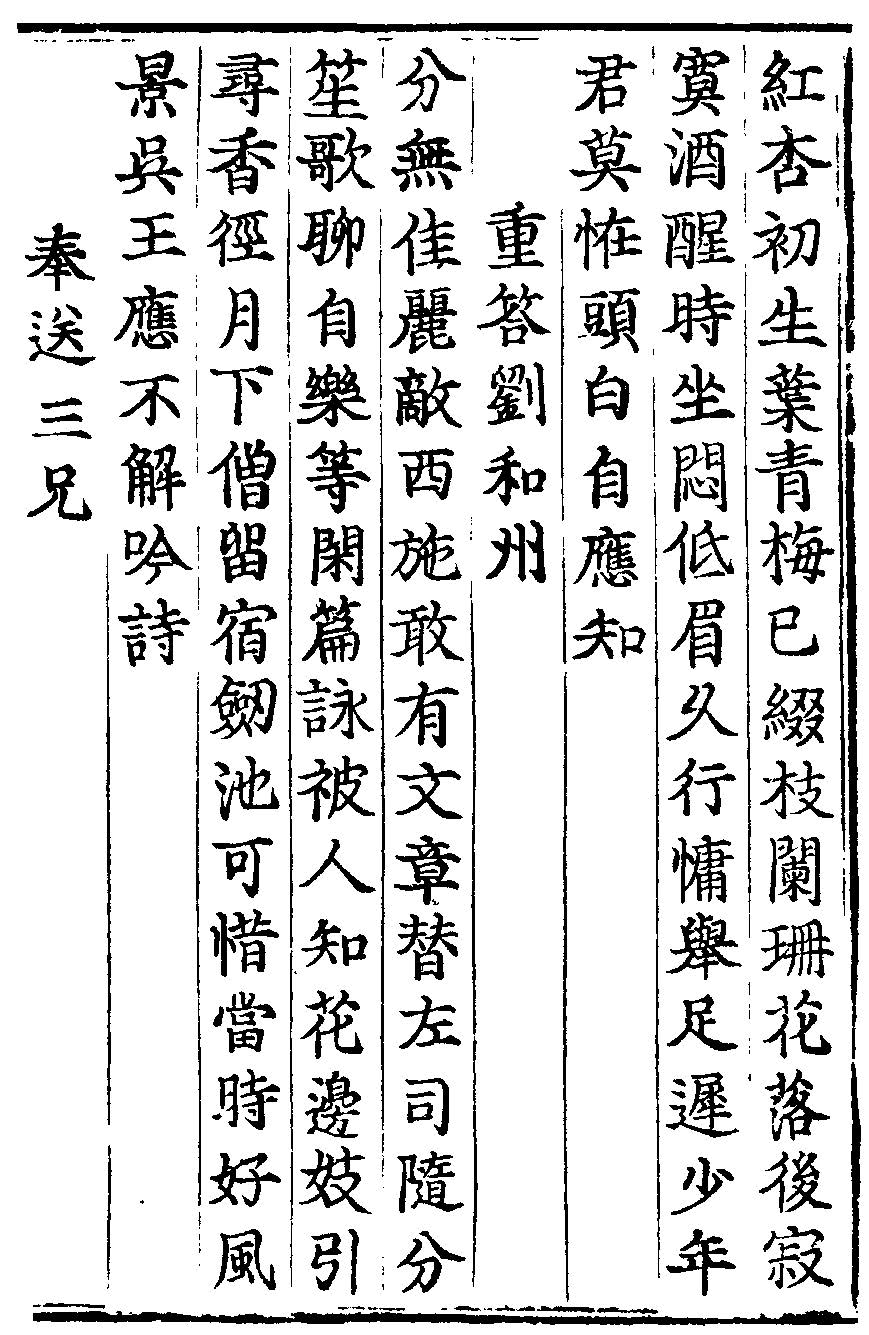 紅杏初生葉青梅已綴枝闌珊花落後寂
寞酒醒時坐悶低眉久行慵舉足遲少年
君莫恠頭白自應知
重答劉和州
分無佳麗敵西施敢有文章替左司隨分
笙歌聊自樂等閑篇詠被人知花邊妓引
尋香徑月下僧留宿劒池可惜當時好風
景吳王應不解吟詩
奉送三兄